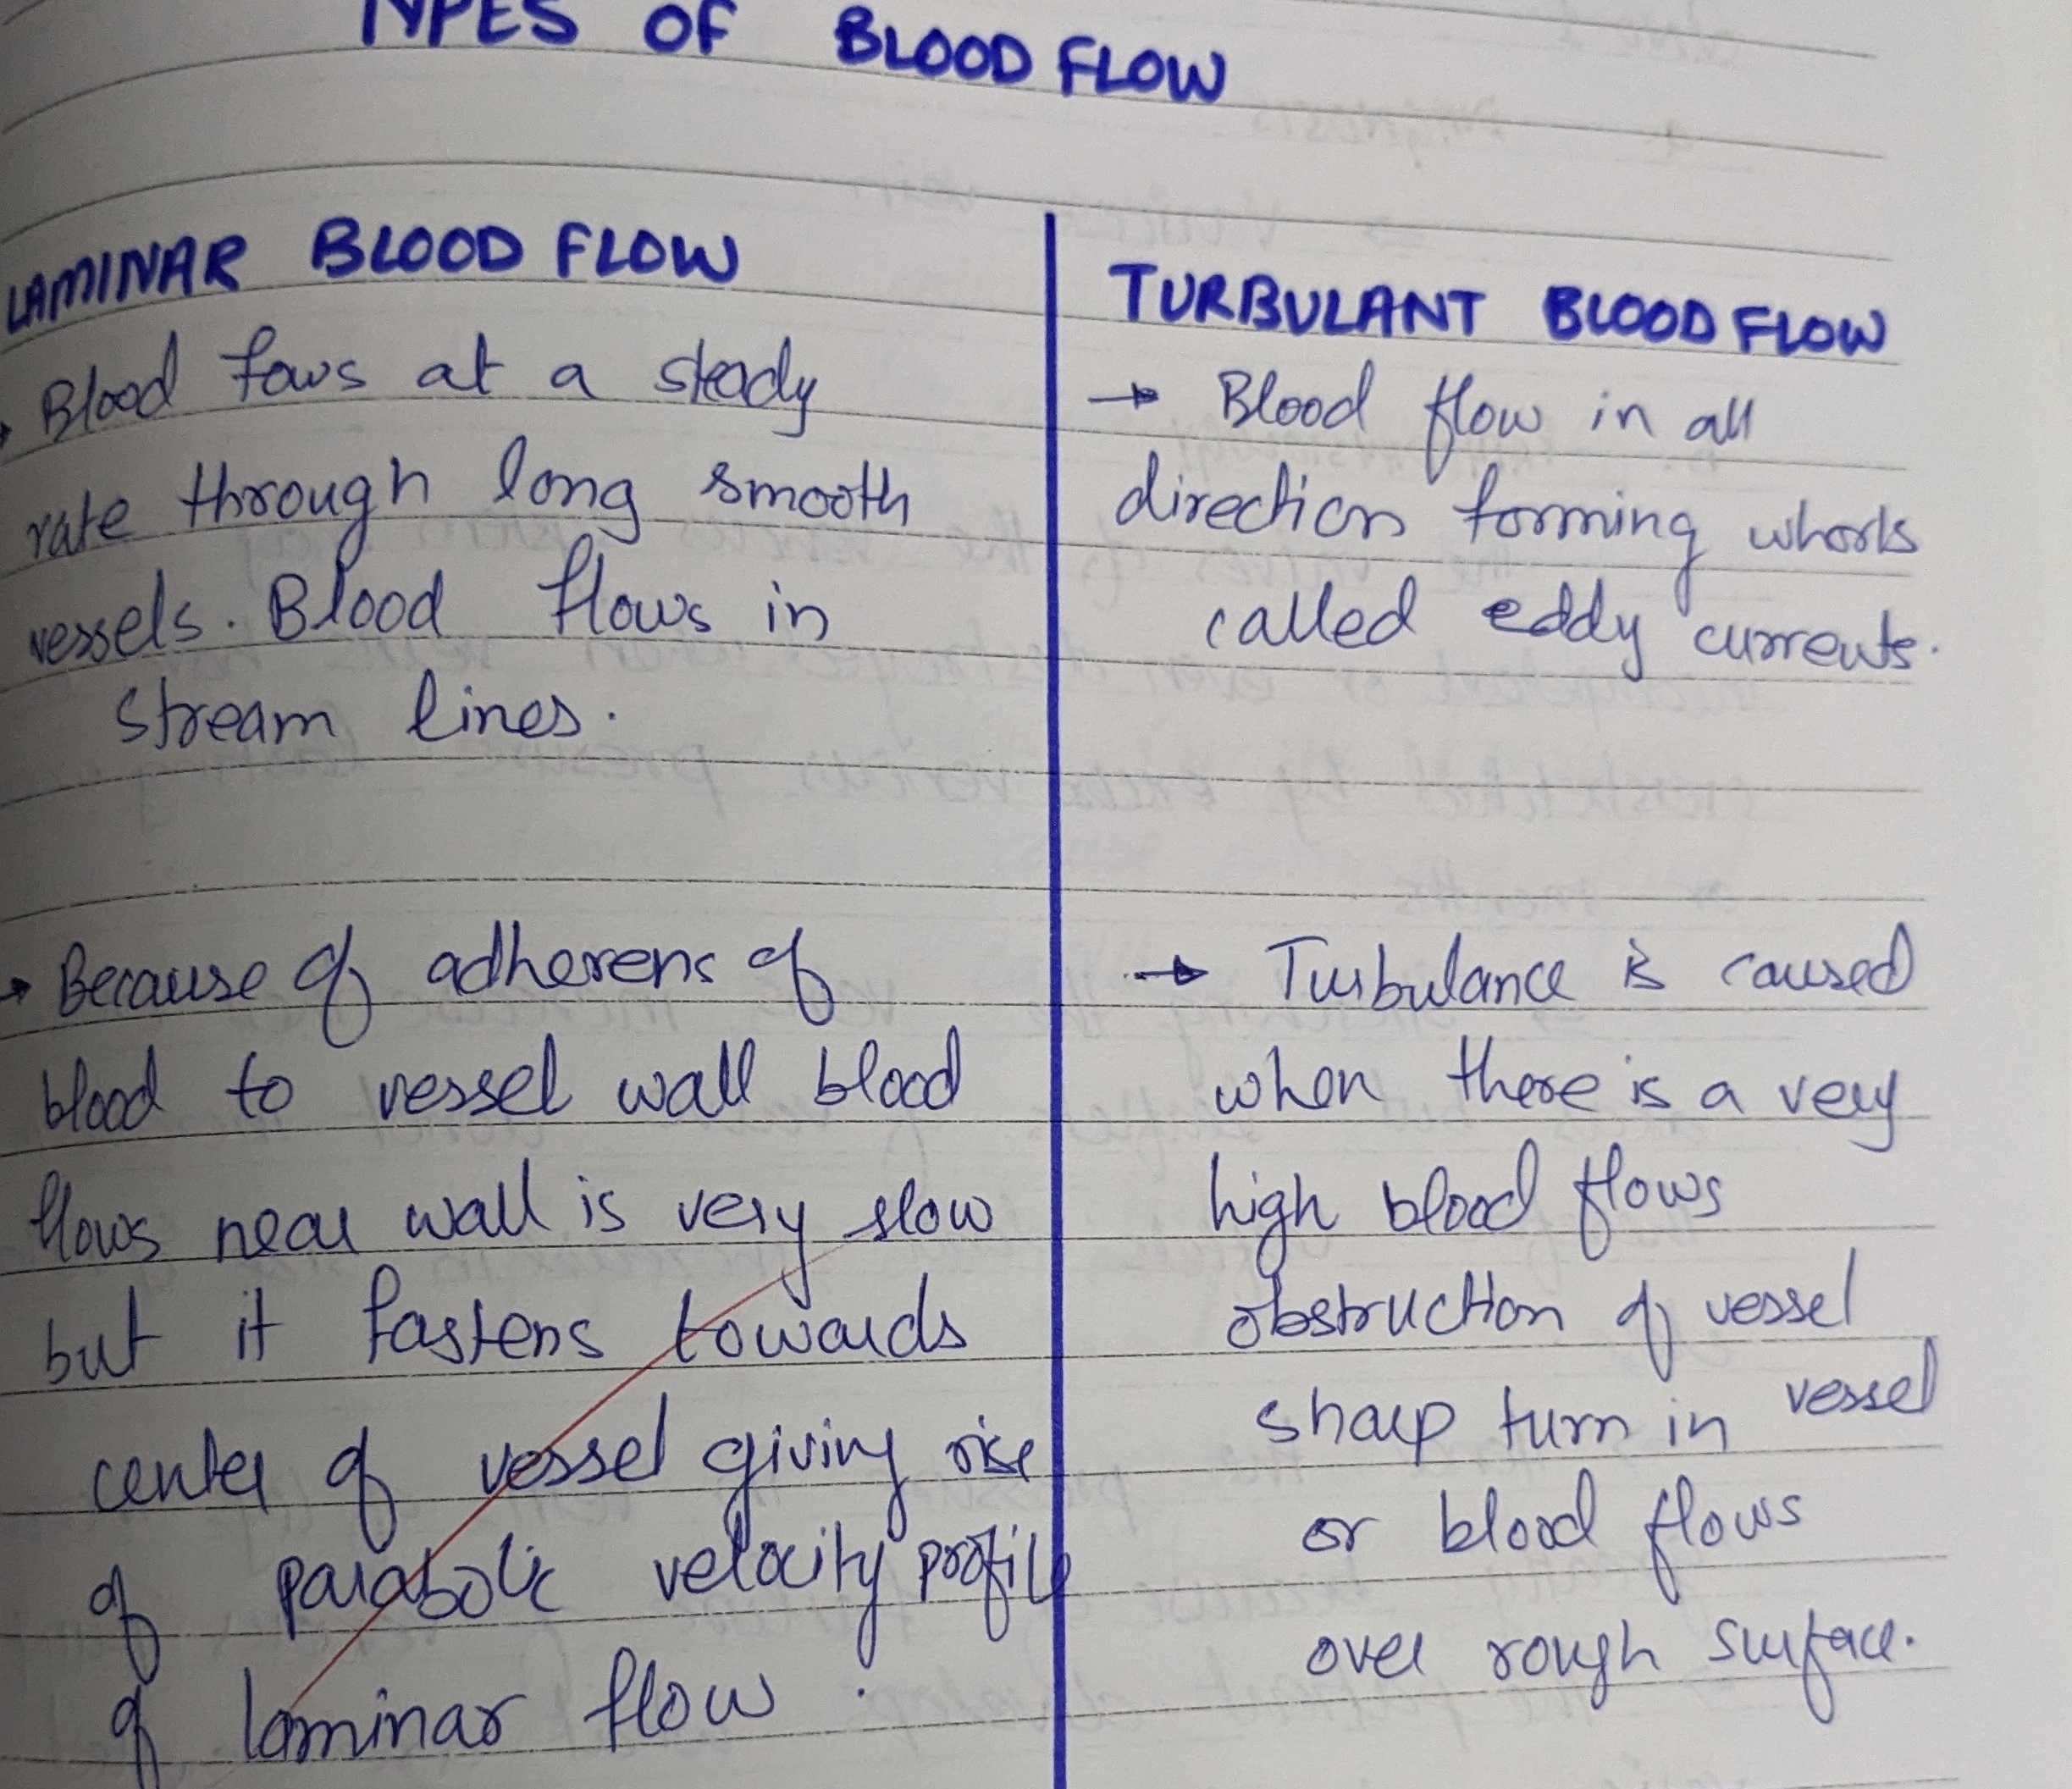 TYPES OF BLOOD FLOW
LAMINAR BLOOD FLOW
→ Blood fows at a steady
rate through long smooth
vessels. Blood flows in
stream lines.
→ Because of adherens of
blood to vessel wall blood
flows near wall is very slow
but it fastens towards
center of vessel giving rise
of parabolic velocity profile
of laminar flow.
TURBULANT BLOOD FLOW
→ Blood flow in all
direction forming whorls
called eddy currents.
→ Turbulance is caused
when there is a very
high blood flows
obstruction of vessel
sharp turn in vessel
or blood flows
over rough surface.